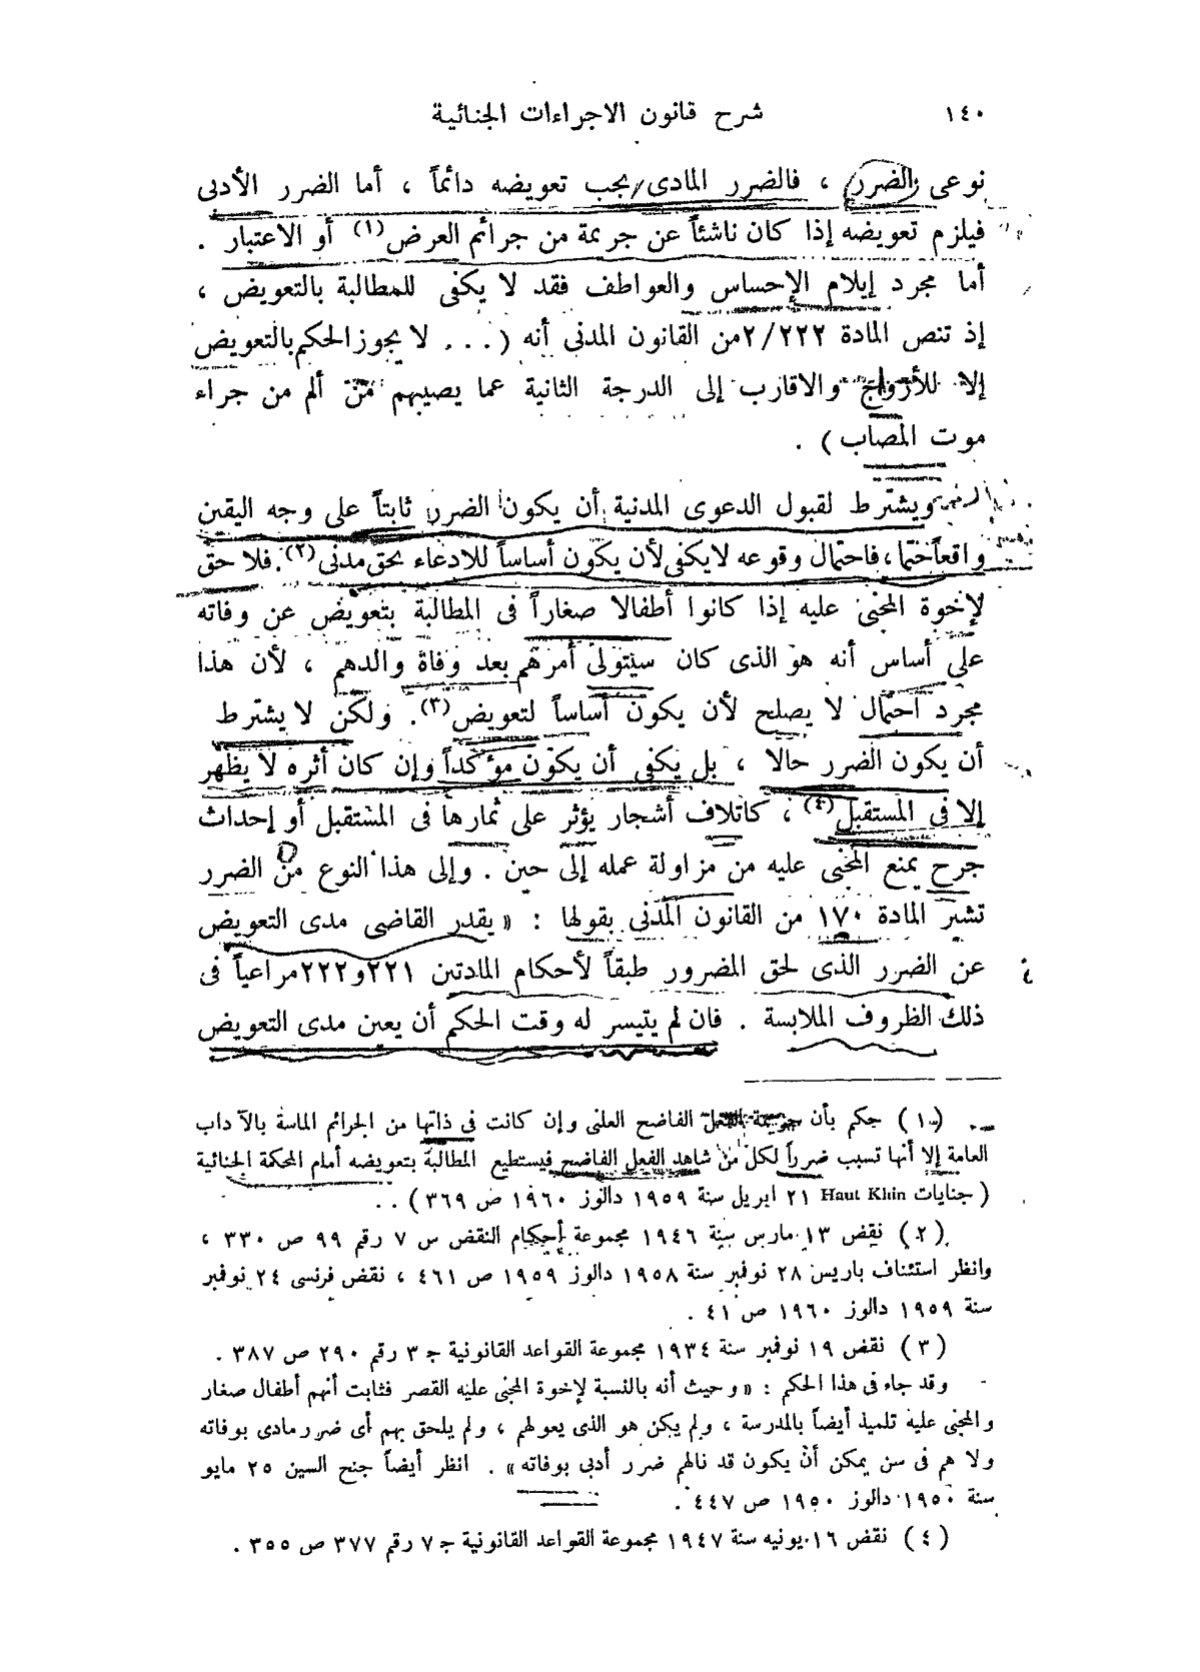 ١٤٠ شرح قانون الاجراءات الجنائية
نوعى الضرر ، فالضرر المادى يجب تعويضه دائماً ، أما الضرر الأدبى
فيلزم تعويضه إذا كان ناشئاً عن جريمة من جرائم العرض (١) أو الاعتبار .
أما مجرد إيلام الإحساس والعواطف فقد لا يكفى للمطالبة بالتعويض ،
إذ تنص المادة ٢/٢٢٢ من القانون المدنى أنه ( ... لا يجوز الحكم بالتعويض
إلا للأزواج والاقارب إلى الدرجة الثانية عما يصيبهم من ألم من جراء
موت المصاب ) .
ويشترط لقبول الدعوى المدنية أن يكون الضرر ثابتاً على وجه اليقين
واقعاً حتما ، فاحتمال وقوعه لا يكفى لأن يكون أساساً للادعاء بحق مدنى (٢) . فلا حق
لإخوة المجنى عليه إذا كانوا أطفالا صغاراً فى المطالبة بتعويض عن وفاته
على أساس أنه هو الذى كان سيتولى أمرهم بعد وفاة والدهم ، لأن هذا
مجرد احتمال لا يصلح لأن يكون أساساً لتعويض (٣) . ولكن لا يشترط
أن يكون الضرر حالا ، بل يكفى أن يكون مؤكداً وإن كان أثره لا يظهر
إلا فى المستقبل (٤) ، كاتلاف أشجار يؤثر على ثمارها فى المستقبل أو إحداث
جرح يمنع المجنى عليه من مزاولة عمله إلى حين . وإلى هذا النوع من الضرر
تشير المادة ١٧٠ من القانون المدنى بقولها : « يقدر القاضى مدى التعويض
عن الضرر الذى لحق المضرور طبقاً لأحكام المادتين ٢٢١ و ٢٢٢ مراعياً فى
ذلك الظروف الملابسة . فان لم يتيسر له وقت الحكم أن يعين مدى التعويض
(١) حكم بأن جريمة الفعل الفاضح العلنى وإن كانت فى ذاتها من الجرائم الماسة بالآداب
العامة إلا أنها تسبب ضرراً لكل من شاهد الفعل الفاضح فيستطيع المطالبة بتعويضه أمام المحكمة الجنائية
( جنايات Haut Khin ٢١ ابريل سنة ١٩٥٩ دالوز ١٩٦٠ ص ٣٦٩ ) .
(٢) نقض ١٣ مارس سنة ١٩٤٦ مجموعة أحكام النقض س ٧ رقم ٩٩ ص ٣٣٠ ،
وانظر استئناف باريس ٢٨ نوفمبر سنة ١٩٥٨ دالوز ١٩٥٩ ص ٤٦١ ، نقض فرنسى ٢٤ نوفمبر
سنة ١٩٥٩ دالوز ١٩٦٠ ص ٤١ .
(٣) نقض ١٩ نوفمبر سنة ١٩٣٤ مجموعة القواعد القانونية ج ٣ رقم ٢٩٠ ص ٣٨٧ .
وقد جاء فى هذا الحكم : « وحيث أنه بالنسبة لإخوة المجنى عليه القصر فثابت أنهم أطفال صغار
والمجنى عليه تلميذ أيضاً بالمدرسة ، ولم يكن هو الذى يعولهم ، ولم يلحق بهم أى ضرر مادى بوفاته
ولا هم فى سن يمكن أن يكون قد نالهم ضرر أدبى بوفاته » . انظر أيضاً جنح السين ٢٥ مايو
سنة ١٩٥٠ دالوز ١٩٥٠ ص ٤٤٧ .
(٤) نقض ١٦ يونيه سنة ١٩٤٧ مجموعة القواعد القانونية ج ٧ رقم ٣٧٧ ص ٣٥٥ .